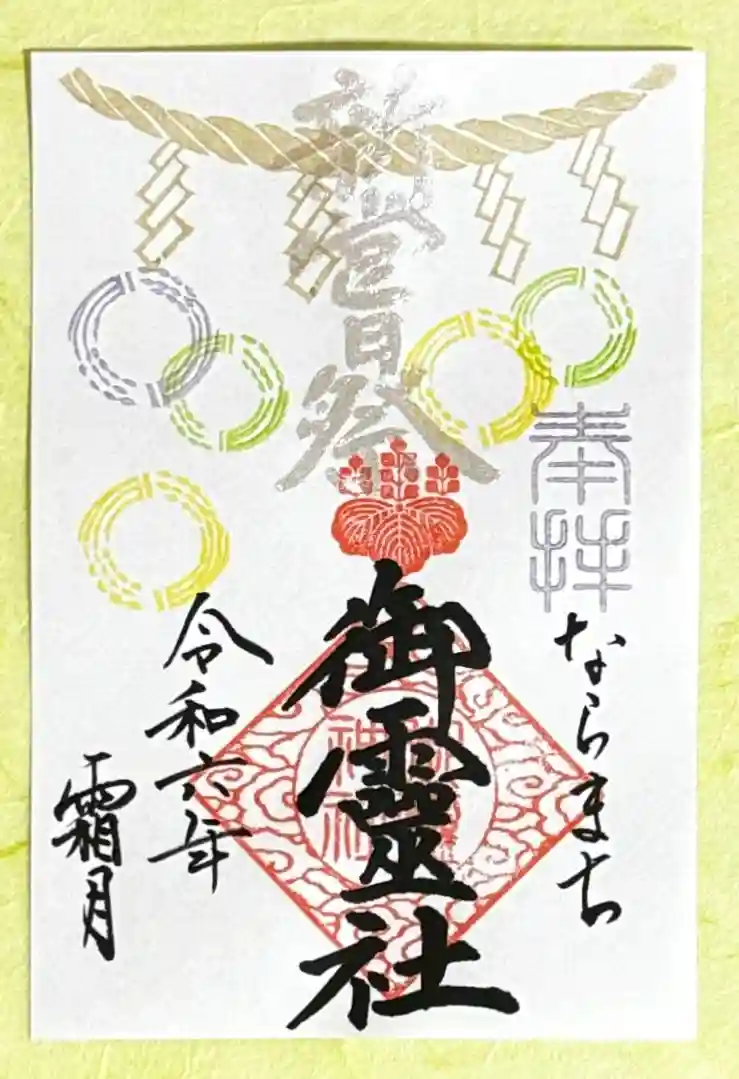 奉拝
ならまち
新嘗祭
御靈社
神社
令和六年
霜月